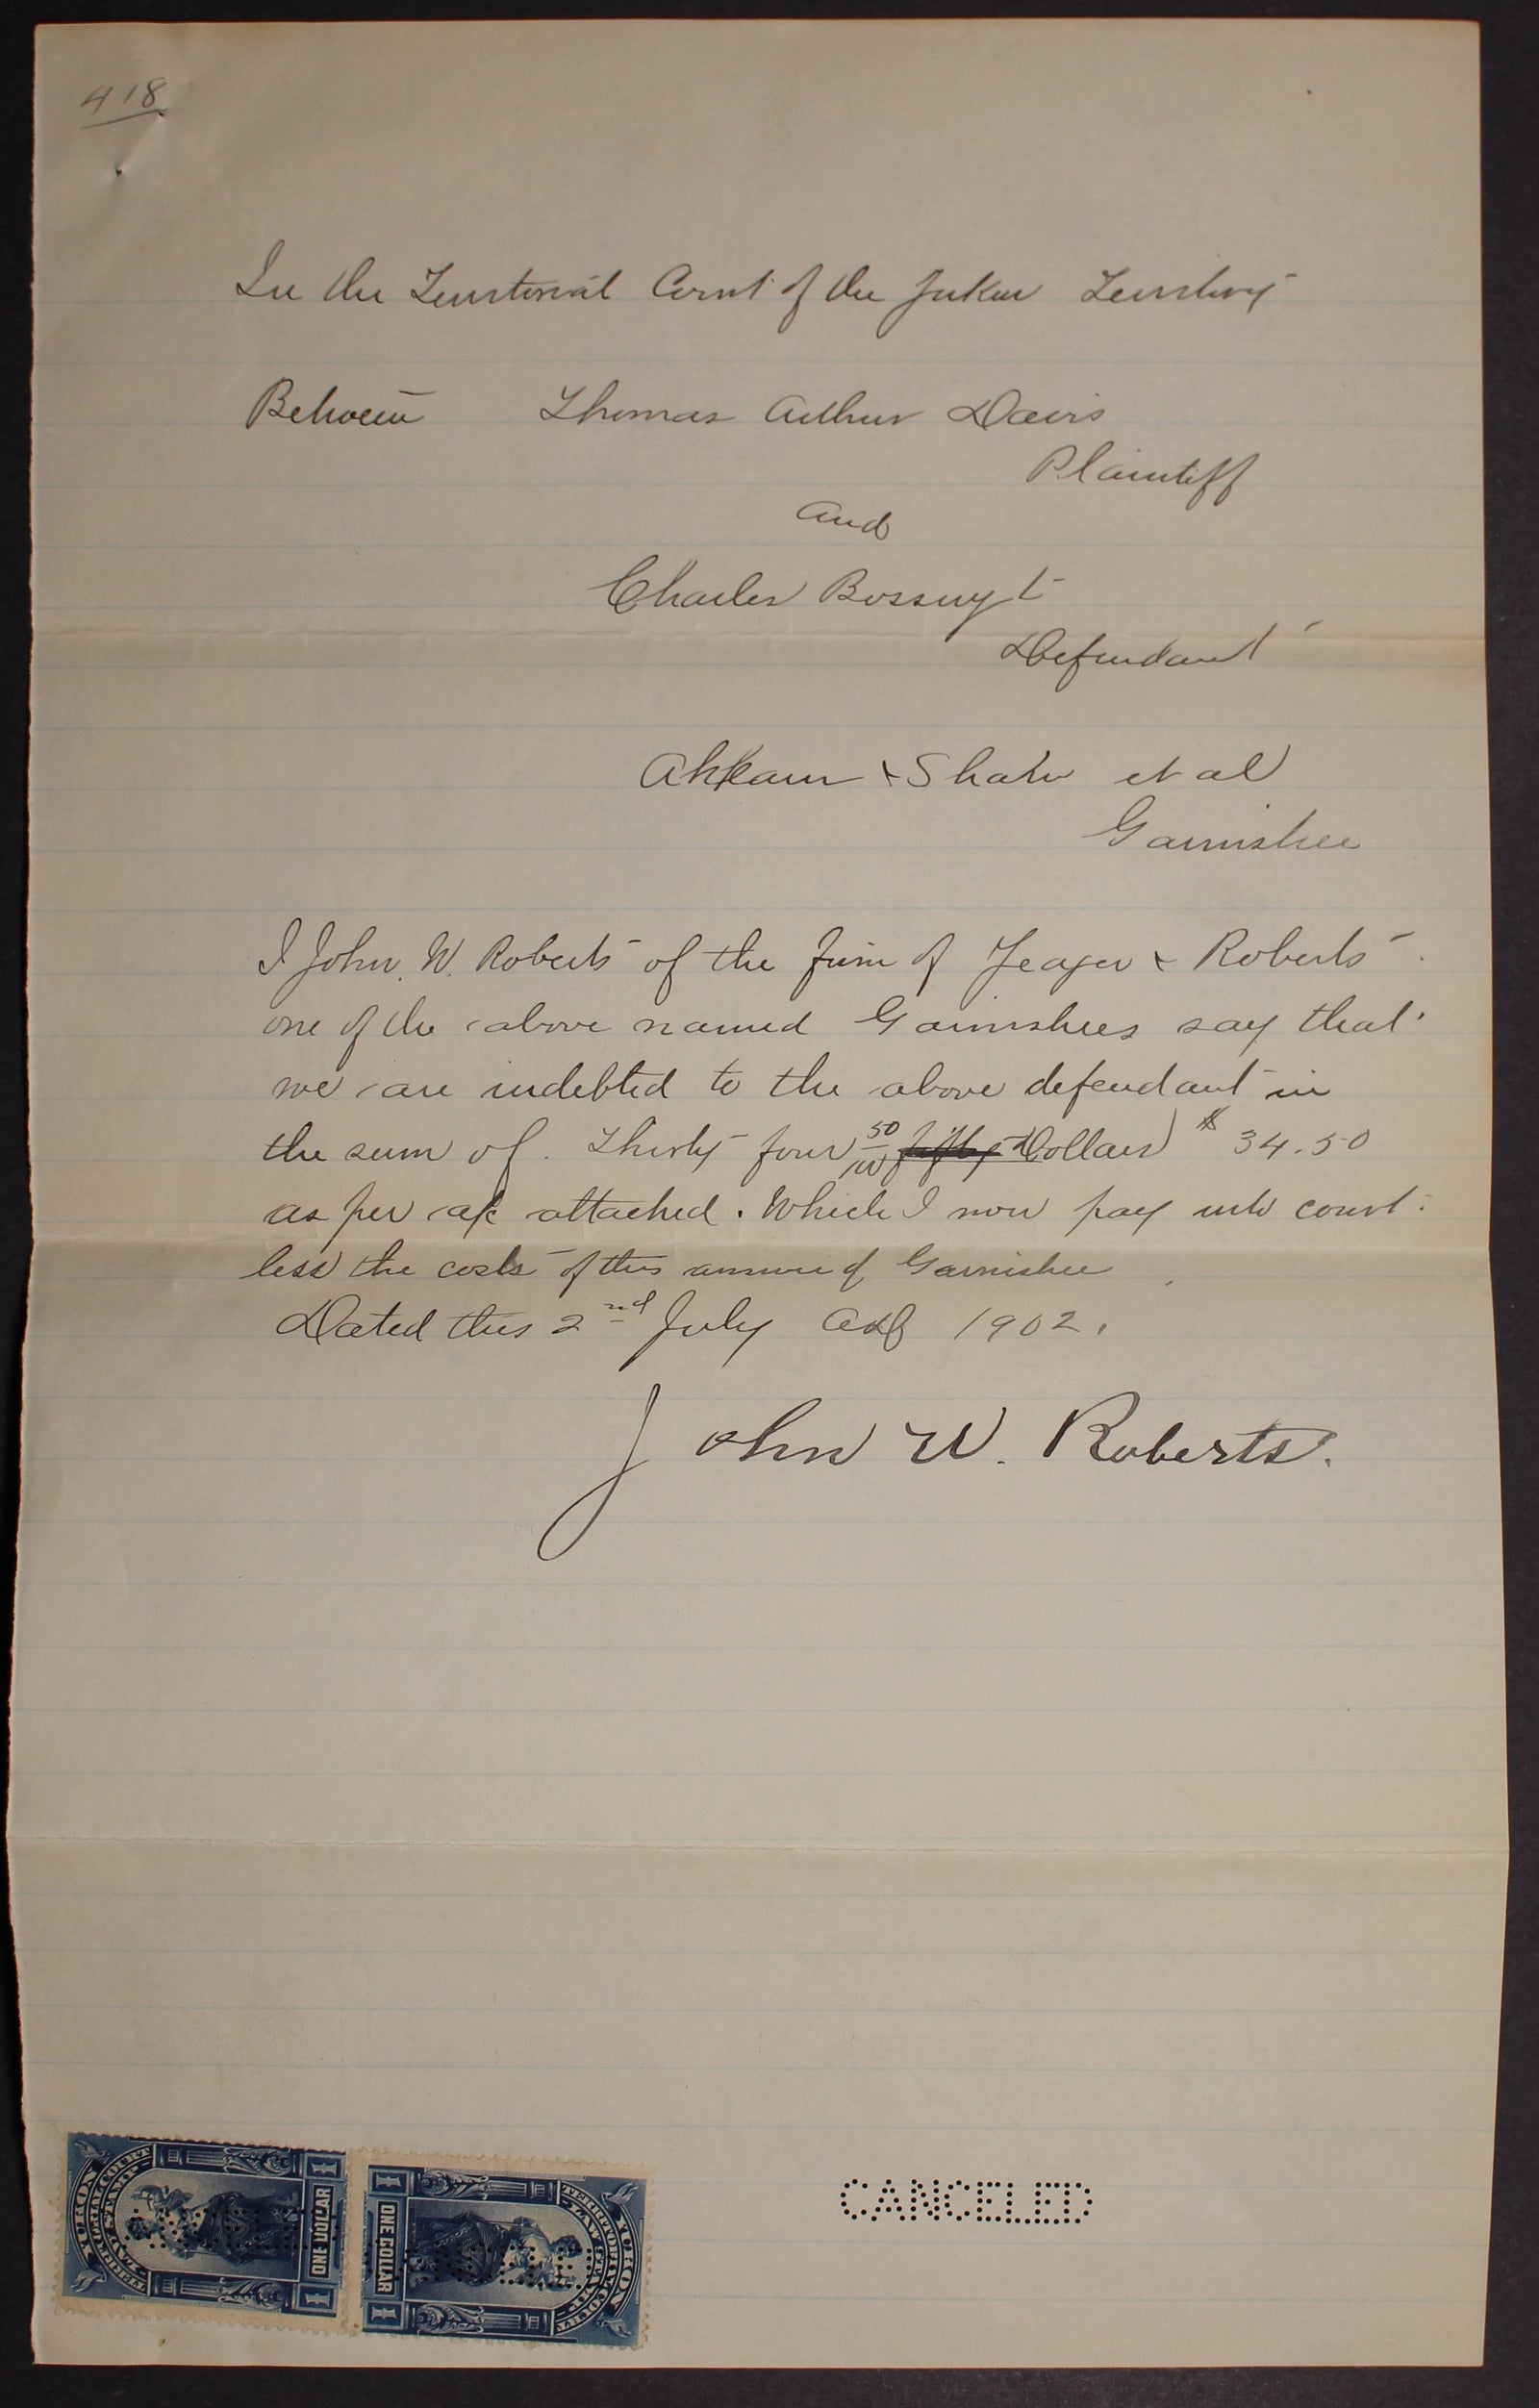 418
In the Territorial Court of the Yukon Territory
Between Thomas Arthur Davis
Plaintiff
and
Charles Bossuyt
Defendant
& Shaw et al
Garnishee
I John W. Roberts of the firm of Yeager & Roberts
one of the above named Garnishees say that
we are indebted to the above defendant in
the sum of. Thirty four 50/100 fifty Dollars $ 34.50
as per a/c attached. Which I now pay into court.
less the costs of this answer of Garnishee
Dated this 2nd July AD 1902.
John W. Roberts.
YUKON
TERRITORIAL COURT
LAW STAMP
1 ONE DOLLAR 1
YUKON
TERRITORIAL COURT
LAW STAMP
1 ONE DOLLAR 1
CANCELED